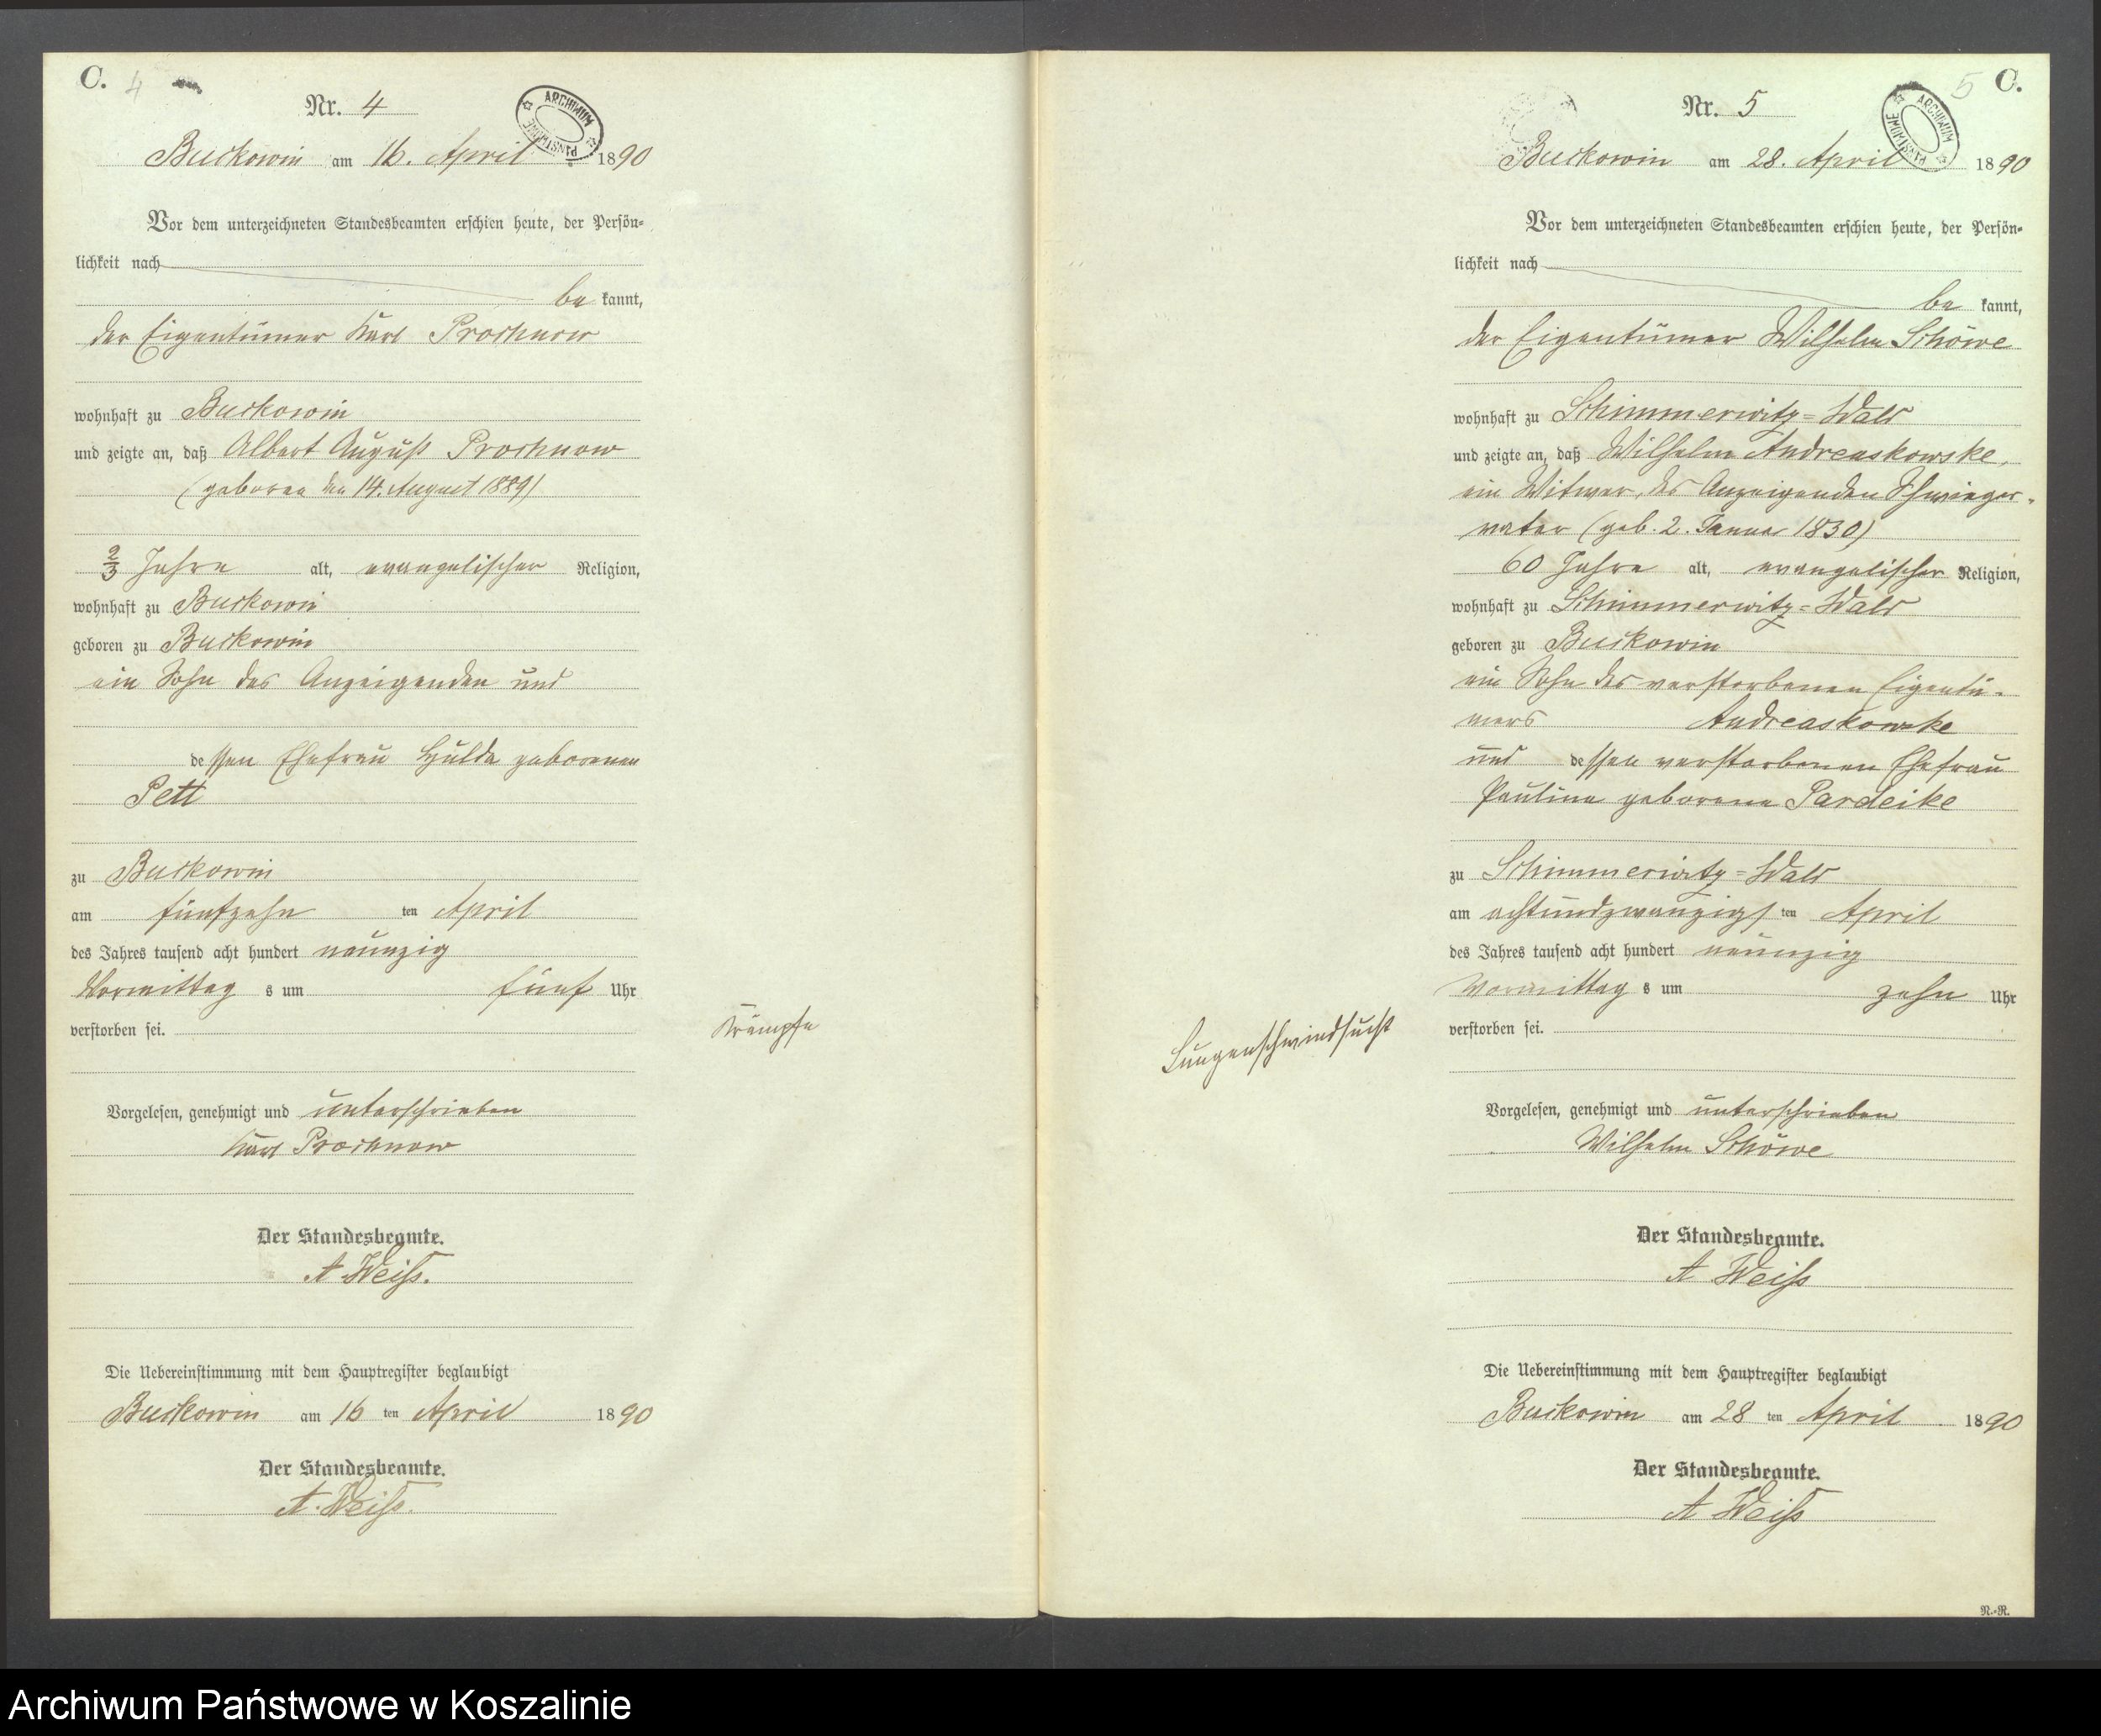 C. 4
Nr. 4
ARCHIWUM PAŃSTWOWE
Buckowin am 16. April 1890
Vor dem unterzeichneten Standesbeamten erschien heute, der Persön-
lichkeit nach
be kannt,
der Eigentümer Karl Prochnow
wohnhaft zu Buckowin
und zeigte an, daß Albert August Prochnow
(geboren den 14. August 1889)
2/3 Jahre alt, evangelischer Religion,
wohnhaft zu Buckowin
geboren zu Buckowin
ein Sohn des Anzeigenden und
dessen Ehefrau Hulda geborenen
Pett
zu Buckowin
am fünfzehn ten April
des Jahres tausend acht hundert neunzig
Vormittag s um fünf Uhr
verstorben sei.
Krämpfe
Vorgelesen, genehmigt und unterschrieben
Karl Prochnow
Der Standesbeamte.
A Weiß.
Die Uebereinstimmung mit dem Hauptregister beglaubigt
Buckowin am 16 ten April 1890
Der Standesbeamte.
A. Weiß.
5 C.
Nr. 5
ARCHIWUM PAŃSTWOWE
Buckowin am 28. April 1890
Vor dem unterzeichneten Standesbeamten erschien heute, der Persön-
lichkeit nach
be kannt,
der Eigentümer Wilhelm Schöwe
wohnhaft zu Schimmerwitz=Wald
und zeigte an, daß Wilhelm Andreaskowske,
ein Witwer, des Anzeigenden Schwieger-
vater (geb. 2. Januar 1830)
60 Jahre alt, evangelischer Religion,
wohnhaft zu Schimmerwitz=Wald
geboren zu Buckowin
ein Sohn des verstorbenen Eigentü-
mers Andreaskowske
und dessen verstorbenen Ehefrau
Pauline geborene Pardeike
zu Schimmerwitz=Wald
am achtundzwanzigs ten April
des Jahres tausend acht hundert neunzig
Vormittag s um zehn Uhr
verstorben sei.
Lungenschwindsucht
Vorgelesen, genehmigt und unterschrieben
Wilhelm Schöwe
Der Standesbeamte.
A Weiß
Die Uebereinstimmung mit dem Hauptregister beglaubigt
Buckowin am 28 ten April 1890
Der Standesbeamte.
A Weiß
N.-R.
Archiwum Państwowe w Koszalinie